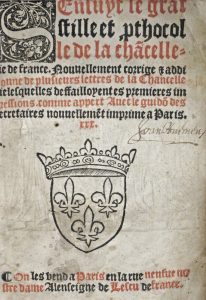 Ensuyt le grāt
stille et pthocol
le de la chācelle-
rie de france. Nouvellement corrige & addi
cione de plusieurs lettres de la Chancelle
rie lesquelles deffailloyent es premieres im
pressions. comme appert Avec le guidō des
secretaires nouvellemēt imprime a Paris.
xxx.
On les vend a Paris en la rue neufve no
stre dame A lenseigne de Lescu de france.